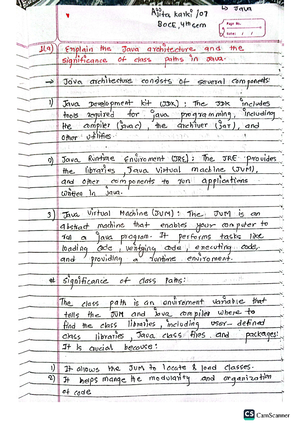 Asita Karki /07
BOCE, 4th sem
→ Java
Page No.:
Date: / /
Explain the Java architecture and the
significance of class paths in Java.
→ Java architecture consists of several components:
1) Java Development kit (JDK) : The JDK includes
tools required for java programming, including
the compiler (javac), the archiver (jar), and
other utilities.
2) Java Runtime Enviroment (JRE) : The JRE provides
the libraries, Java Virtual machine (JVM),
and other components to run applications
written in java.
3) Java Virtual Machine (JVM) : The JVM is an
abstract machine that enables your computer to
run a java program. It performs tasks like
loading code, verifying code, executing code,
and providing a runtime enviroment.
significance of class paths:
The class path is an enviroment variable that
tells the JVM and java compiler where to
find the class libraries, including user-defined
class libraries, Java class files and packages.
It is crucial because:
1) It allows the JVM to locate & load classes.
2) It helps mange the modularity and organization
of code
CS CamScanner